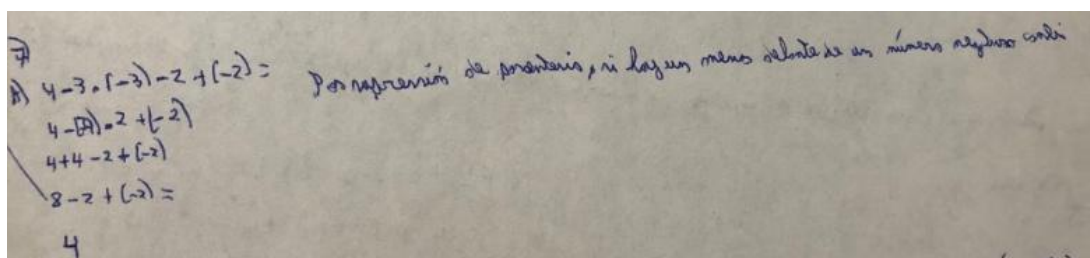 7)
A) 4-3·(-3)-2+(-2)= Por supresión de parentesis, si hay un menos delante de un número negativo cambi
4-(-4)-2+(-2)
4+4-2+(-2)
8-2+(-2)=
4